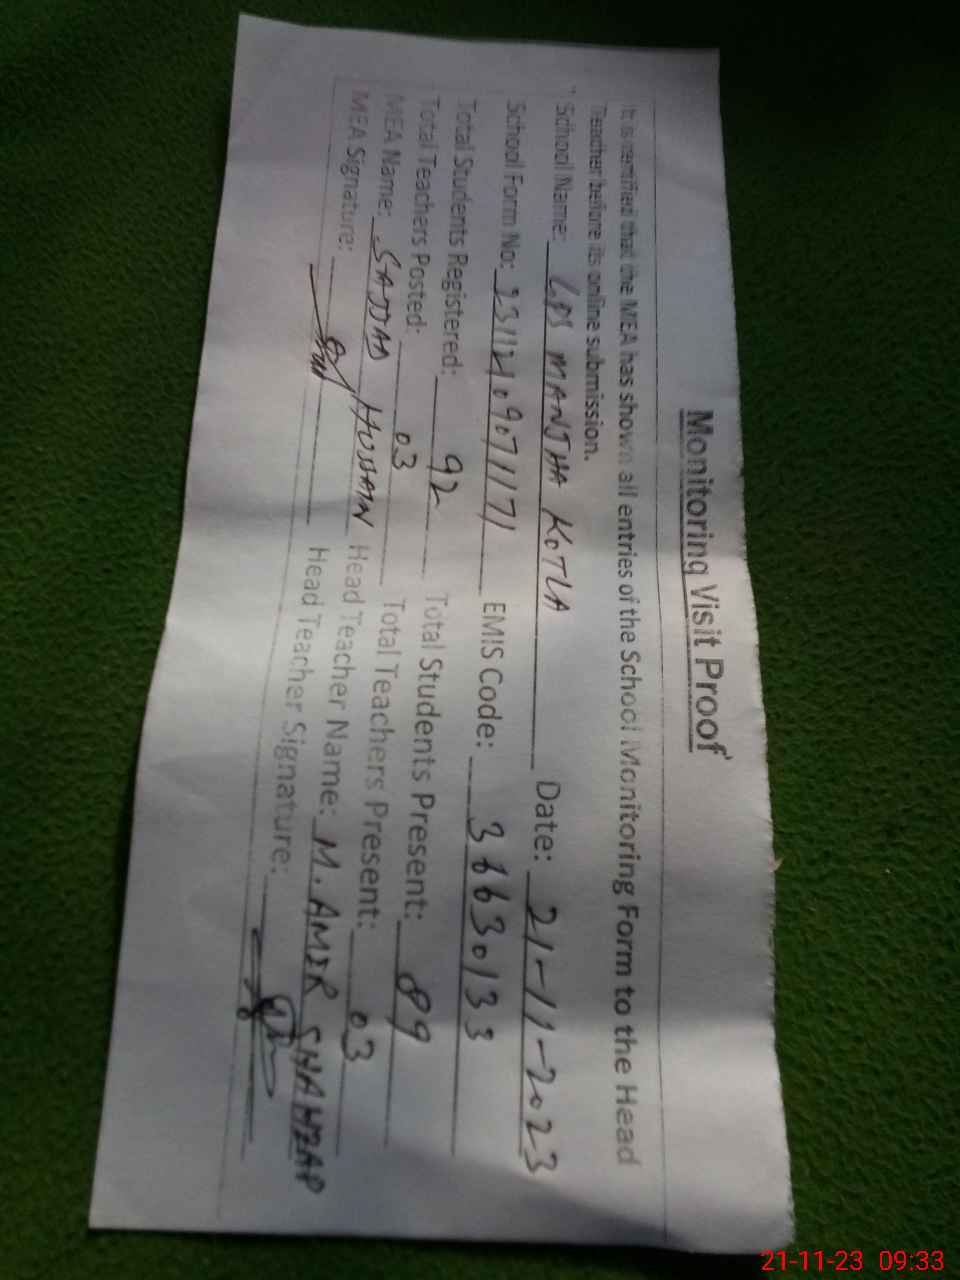 Monitoring Visit Proof
It is certified that the MEA has shown all entries of the School Monitoring Form to the Head
Teacher before its online submission.
School Name: GPS MANJHA KOTLA Date: 21-11-2023
School Form No: 23112109071171 EMIS Code: 36630133
Total Students Registered: 92 Total Students Present: 89
Total Teachers Posted: 03 Total Teachers Present: 03
MEA Name: SAJJAD HUSSAIN Head Teacher Name: M. AMIR SHAHZAD
MEA Signature: Head Teacher Signature:
21-11-23 09:33